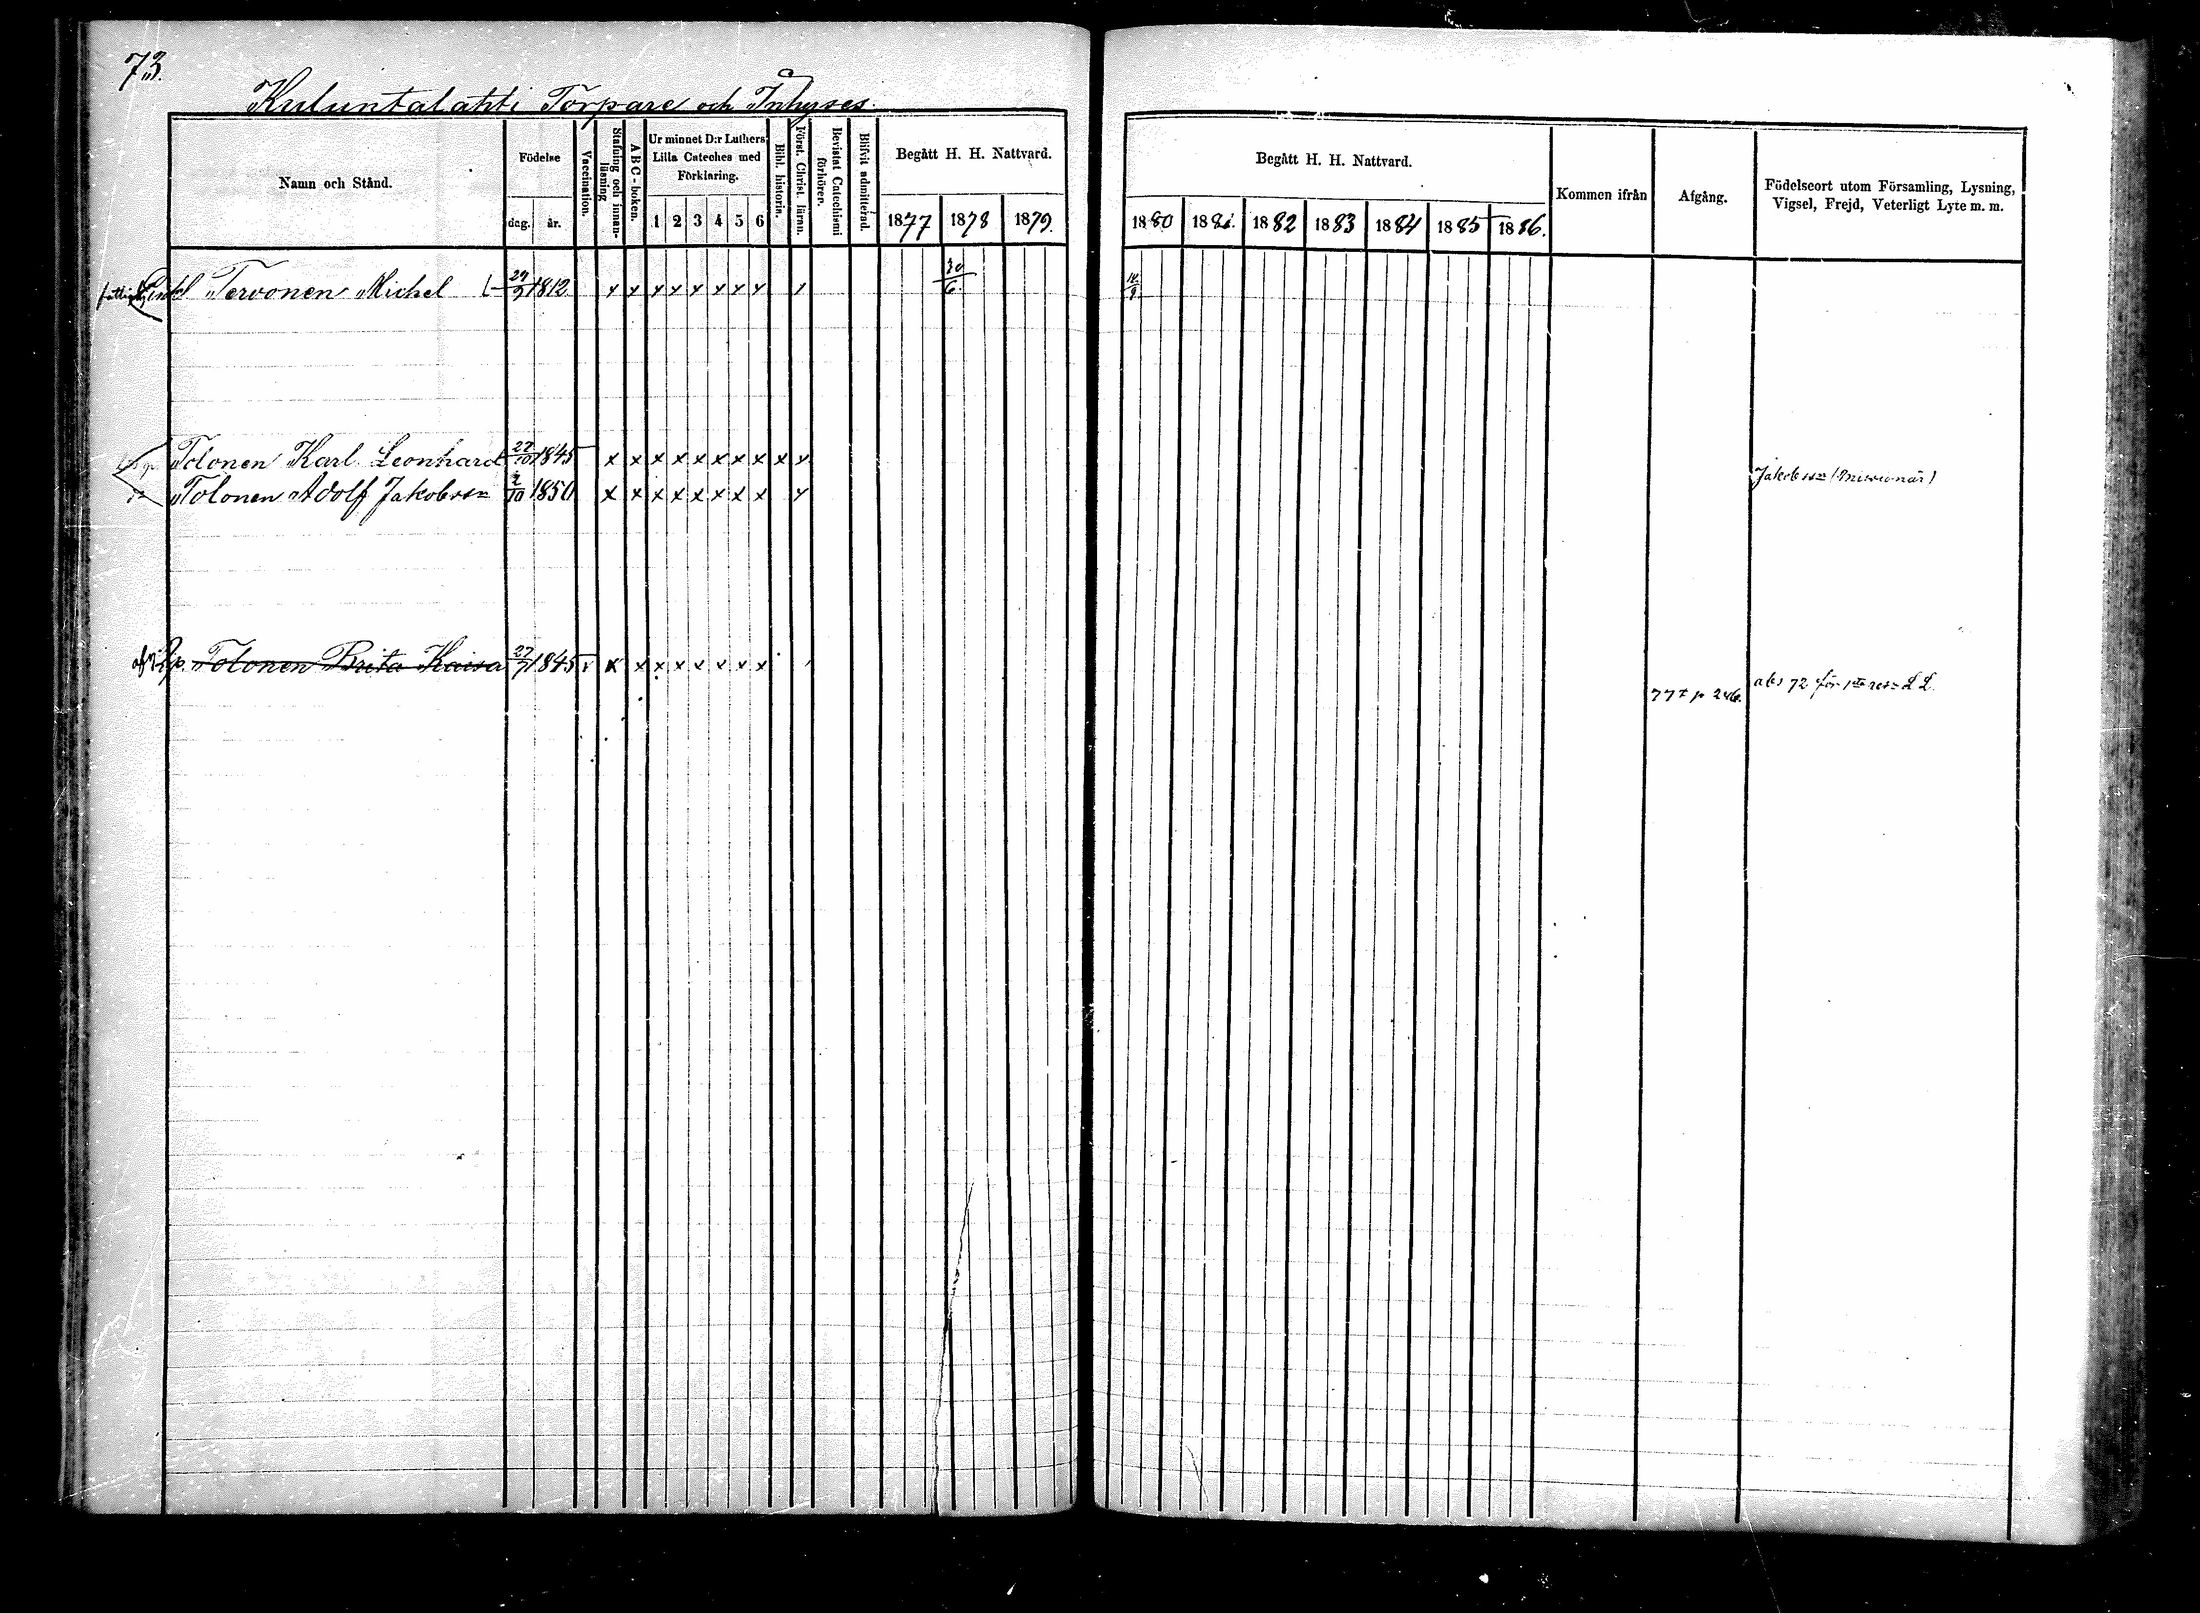 73.
Kuluntalahti Torpare och Inhyses.
Namn och Stånd.
Födelse
dag. år.
Vaccination.
Stafning och innan-läsning
A B C - boken.
Ur minnet D:r Luthers
Lilla Cateches med
Förklaring.
1 2 3 4 5 6
Bibl. historia.
Först. Christ. läran.
Bevistat Catechismi förhörer.
Blifvit admitterad.
Begått H. H. Nattvard.
1877 1878 1879.
Begått H. H. Nattvard.
1880 1881. 1882 1883 1884 1885 1886.
Kommen ifrån
Afgång.
Födelseort utom Församling, Lysning,
Vigsel, Frejd, Veterligt Lyte m. m.
Enkl Tervonen Michel 29/9 1812. x x x x x x x x x 30/6
Tolonen Karl Leonhard 27/10 1845 x x x x x x x x x x
Jakobsson (Missionär)
Tolonen Adolf Jakobsson 2/10 1850 x x x x x x x x x
Pig. Tolonen Brita Kaisa 27/7 1845 v x x x x x x x x
77 t p 246. abs 72 för 1sta resn L L.